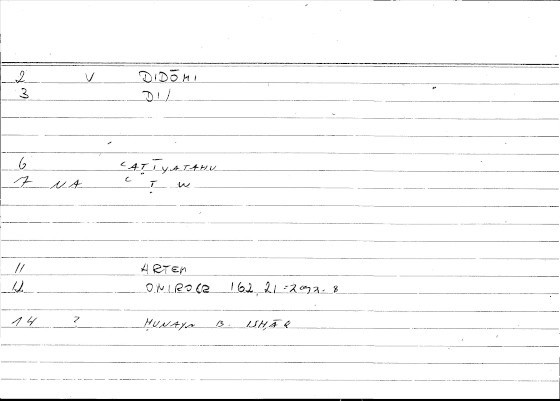 2 V DIDŌMI
3 DI/
6 ʿAṬĪYATAHU
7 NA ʿṬW
11 ARTEM
12 ONIROCR 162,21 =292.8
14 ? ḤUNAYN B. ISḤĀQ